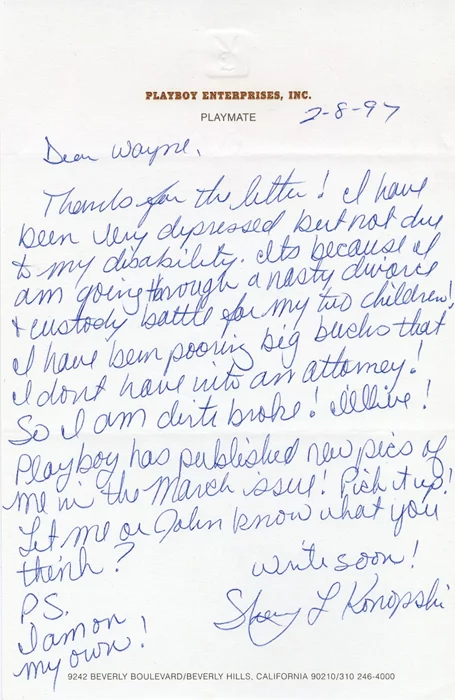 PLAYBOY ENTERPRISES, INC.
PLAYMATE
2-8-97
Dear Wayne,
Thanks for the letter! I have
been very depressed but not due
to my disability. Its because I
am going through a nasty divorce
& custody battle for my two children!
I have been pooring big bucks that
I dont have into an attorney!
So I am dirt broke! I'll live!
Playboy has published new pics of
me in the March issue! Pick it up!
Let me or John know what you
think?
write soon!
P.S.
I am on
my own!
L Konopski
9242 BEVERLY BOULEVARD/BEVERLY HILLS, CALIFORNIA 90210/310 246-4000